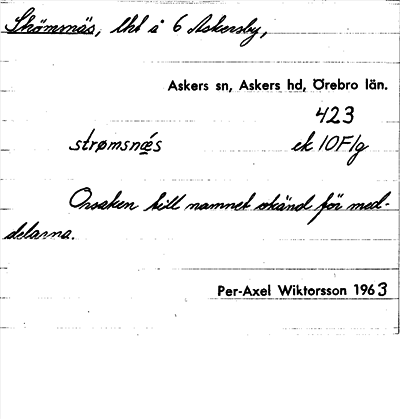 Skömmnäs, lht å 6 Askersby,
Askers sn, Askers hd, Örebro län.
423
strømsnǽs ek 10F1g
Orsaken till namnet okänd för med-
delarna.
Per-Axel Wiktorsson 1963